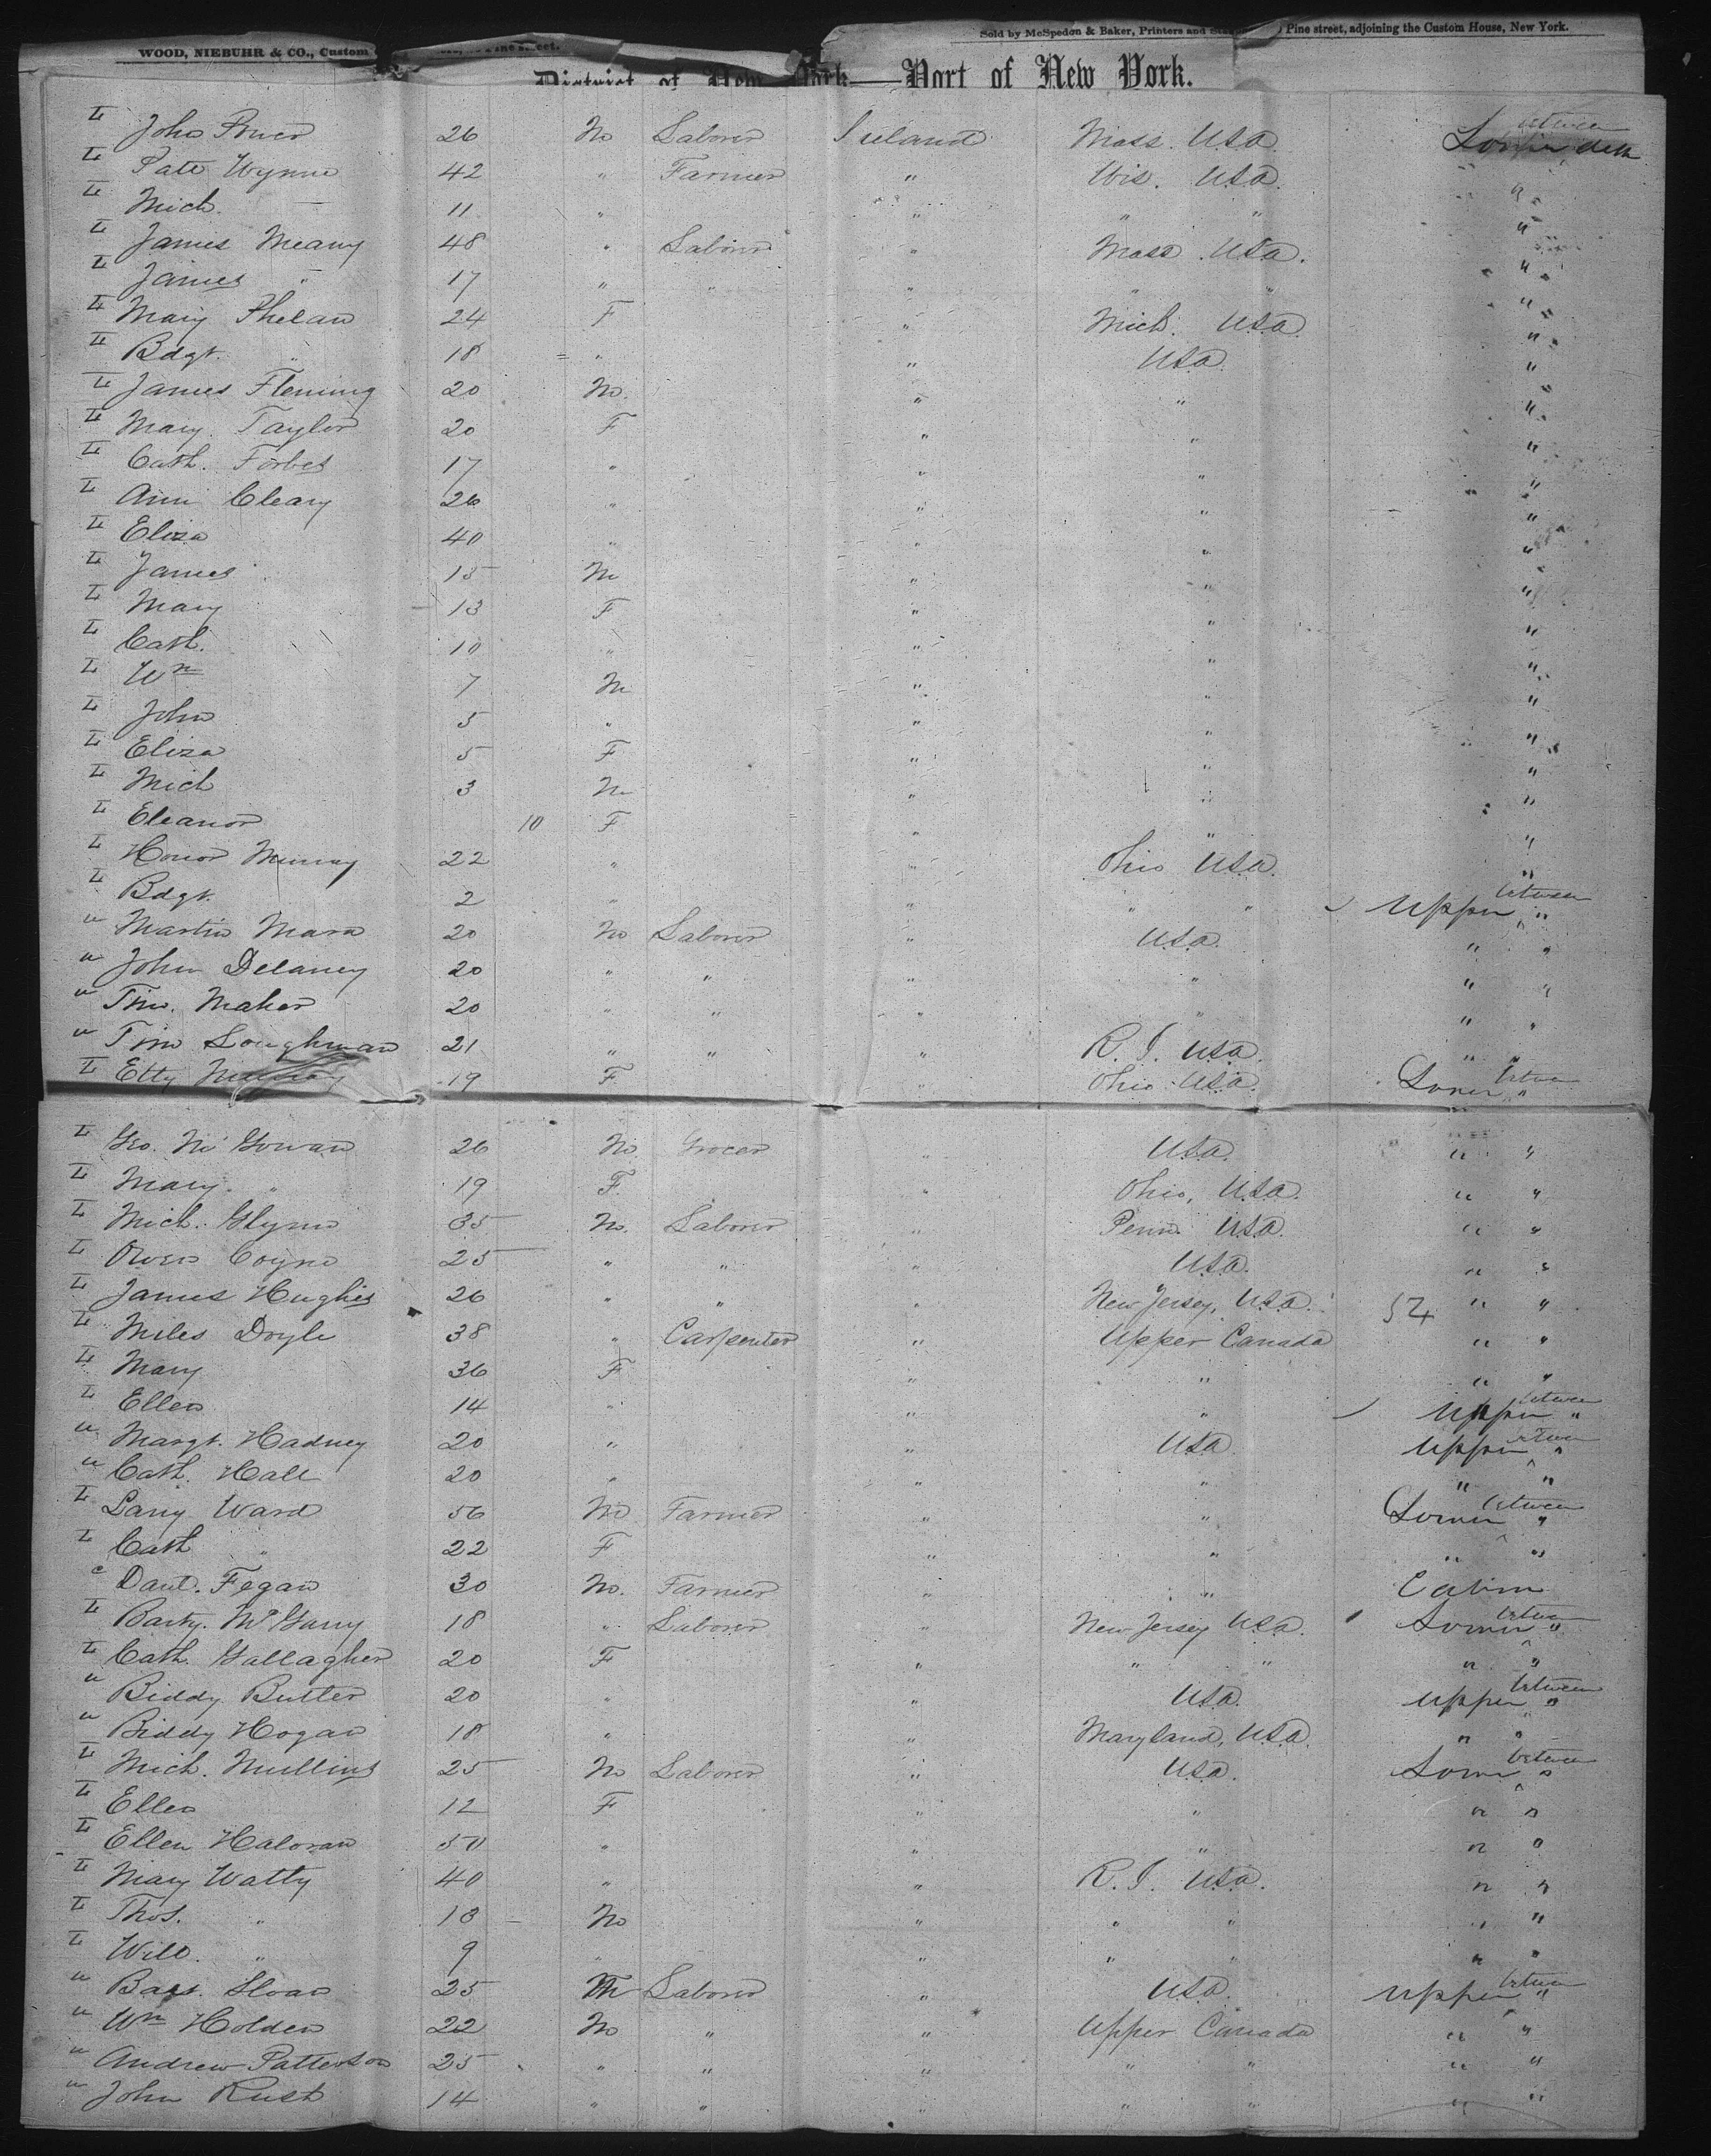 WOOD, NIEBUHR & CO., Custom Pine street.
Sold by McSpedon & Baker, Printers and Pine street, adjoining the Custom House, New York.
District of New York—Port of New York.
L John 26 M Laborer Ireland Mass. USA Lower between deck
L Patt Wynne 42 " Farmer " Wis. USA. " "
L Mich. — 11 " " " " "
L James Meany 48 " Laborer " Mass. USA. " "
L James " 17 " " " " " " "
L Mary Phelan 24 F " Mich. USA " "
L Bdgt. " 18 " " USA " "
L James Fleming 20 M. " " " "
L Mary Taylor 20 F " " " "
L Cath. Forbes 17 " " " "
L Ann Cleary 26 " " " "
L Eliza 40 " " " "
L James 15 M " " "
L Mary 13 F " " "
L Cath. 10 " " " "
L Wm 7 M " " "
L John 5 " " " "
L Eliza 5 F " " "
L Mich 3 M " " "
L Eleanor 10 F " " "
L Honor Murray 22 " " Ohio USA. "
L Bdgt. 2 " " " " Upper between "
u Martin Mara 20 M Laborer " USA. " "
u John Delaney 20 " " " " " "
u Tim. Maher 20 " " " " " "
u Tim Loughman 21 " " " R. I. USA. " "
L Etty Murray 19 F " Ohio USA. Lower between "
L Geo. Mc Gowan 26 M Grocer " USA. " "
L Mary. " 19 F. " Ohio, USA. " "
L Mich. Glynn 35 M. Laborer " Penn. USA. " "
L Owen Coyne 25 " " " USA. " "
L James Hughes 26 " " " New Jersey, USA. 54 " "
L Miles Doyle 38 " Carpenter " Upper Canada " "
L Mary 36 F " " " "
L Ellen 14 " " " Upper between "
u Margt. Hadney 20 " " USA. Upper between "
u Cath. Hall 20 " " " " "
L Larry Ward 56 M Farmer " " Lower between "
L Cath " 22 F " " " "
c Danl. Fegan 30 M. Farmer " " Cabin
L Barty. McGarry 18 " Laborer " New Jersey USA. Lower between "
L Cath. Gallagher 20 F " " " " "
u Biddy Butler 20 " " USA. Upper between "
u Biddy Hogan 18 " " Maryland, USA. " "
L Mich. Mullins 25 M Laborer " USA. Lower between "
L Ellen 12 F " " " "
L Ellen Haloran 50 " " " " "
L Mary Watty 40 " " R. I. USA. " "
L Thos. " 13 M " " " " "
L Will. " 9 " " " " " "
u Sloan 25 M Laborer " USA. Upper between "
u Wm Holden 22 M " " Upper Canada " "
u Andrew Patterson 25 " " " " " " "
u John Rush 14 " " " " " " "